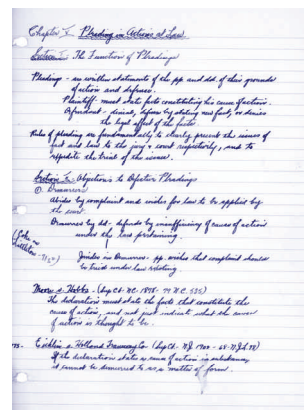 Chapter I. Pleading in Actions at Law
Section I: The Function of Pleadings
Pleadings - are written statements of the pp. and dd. of this grounds
of action and defense.
Plaintiff: must state facts constituting his cause of action.
Defendant - denial, defense by stating new fact, or denies
the legal effect of the facts
Rules of pleading are fundamentally to clearly present the issues of
fact and law to the jury & court respectively, and to
expedite the trial of the issues.
Section 2: Objections to Defective Pleadings
①. Demurrers
Abides by complaint and wishes for law to be applied by
the court.
Demurrer by dd. - defends by insufficiency of causes of action
under the law pertaining.
(Coke on
Littleton
Joinder in Demurrer - pp. wishes that complaint should
be tried under law relating.
Moore v. Hobbs - (Sup Ct. NC. 1878 - 77 N.C. 535)
The declaration must state the facts that constitute the
cause of action, and not just indicate what the
of action is thought to be.
v. Holland (Sup Ct. N.J. 1900
If the declaration states a cause of action in substance,
it cannot be demurred to as a matter of form.